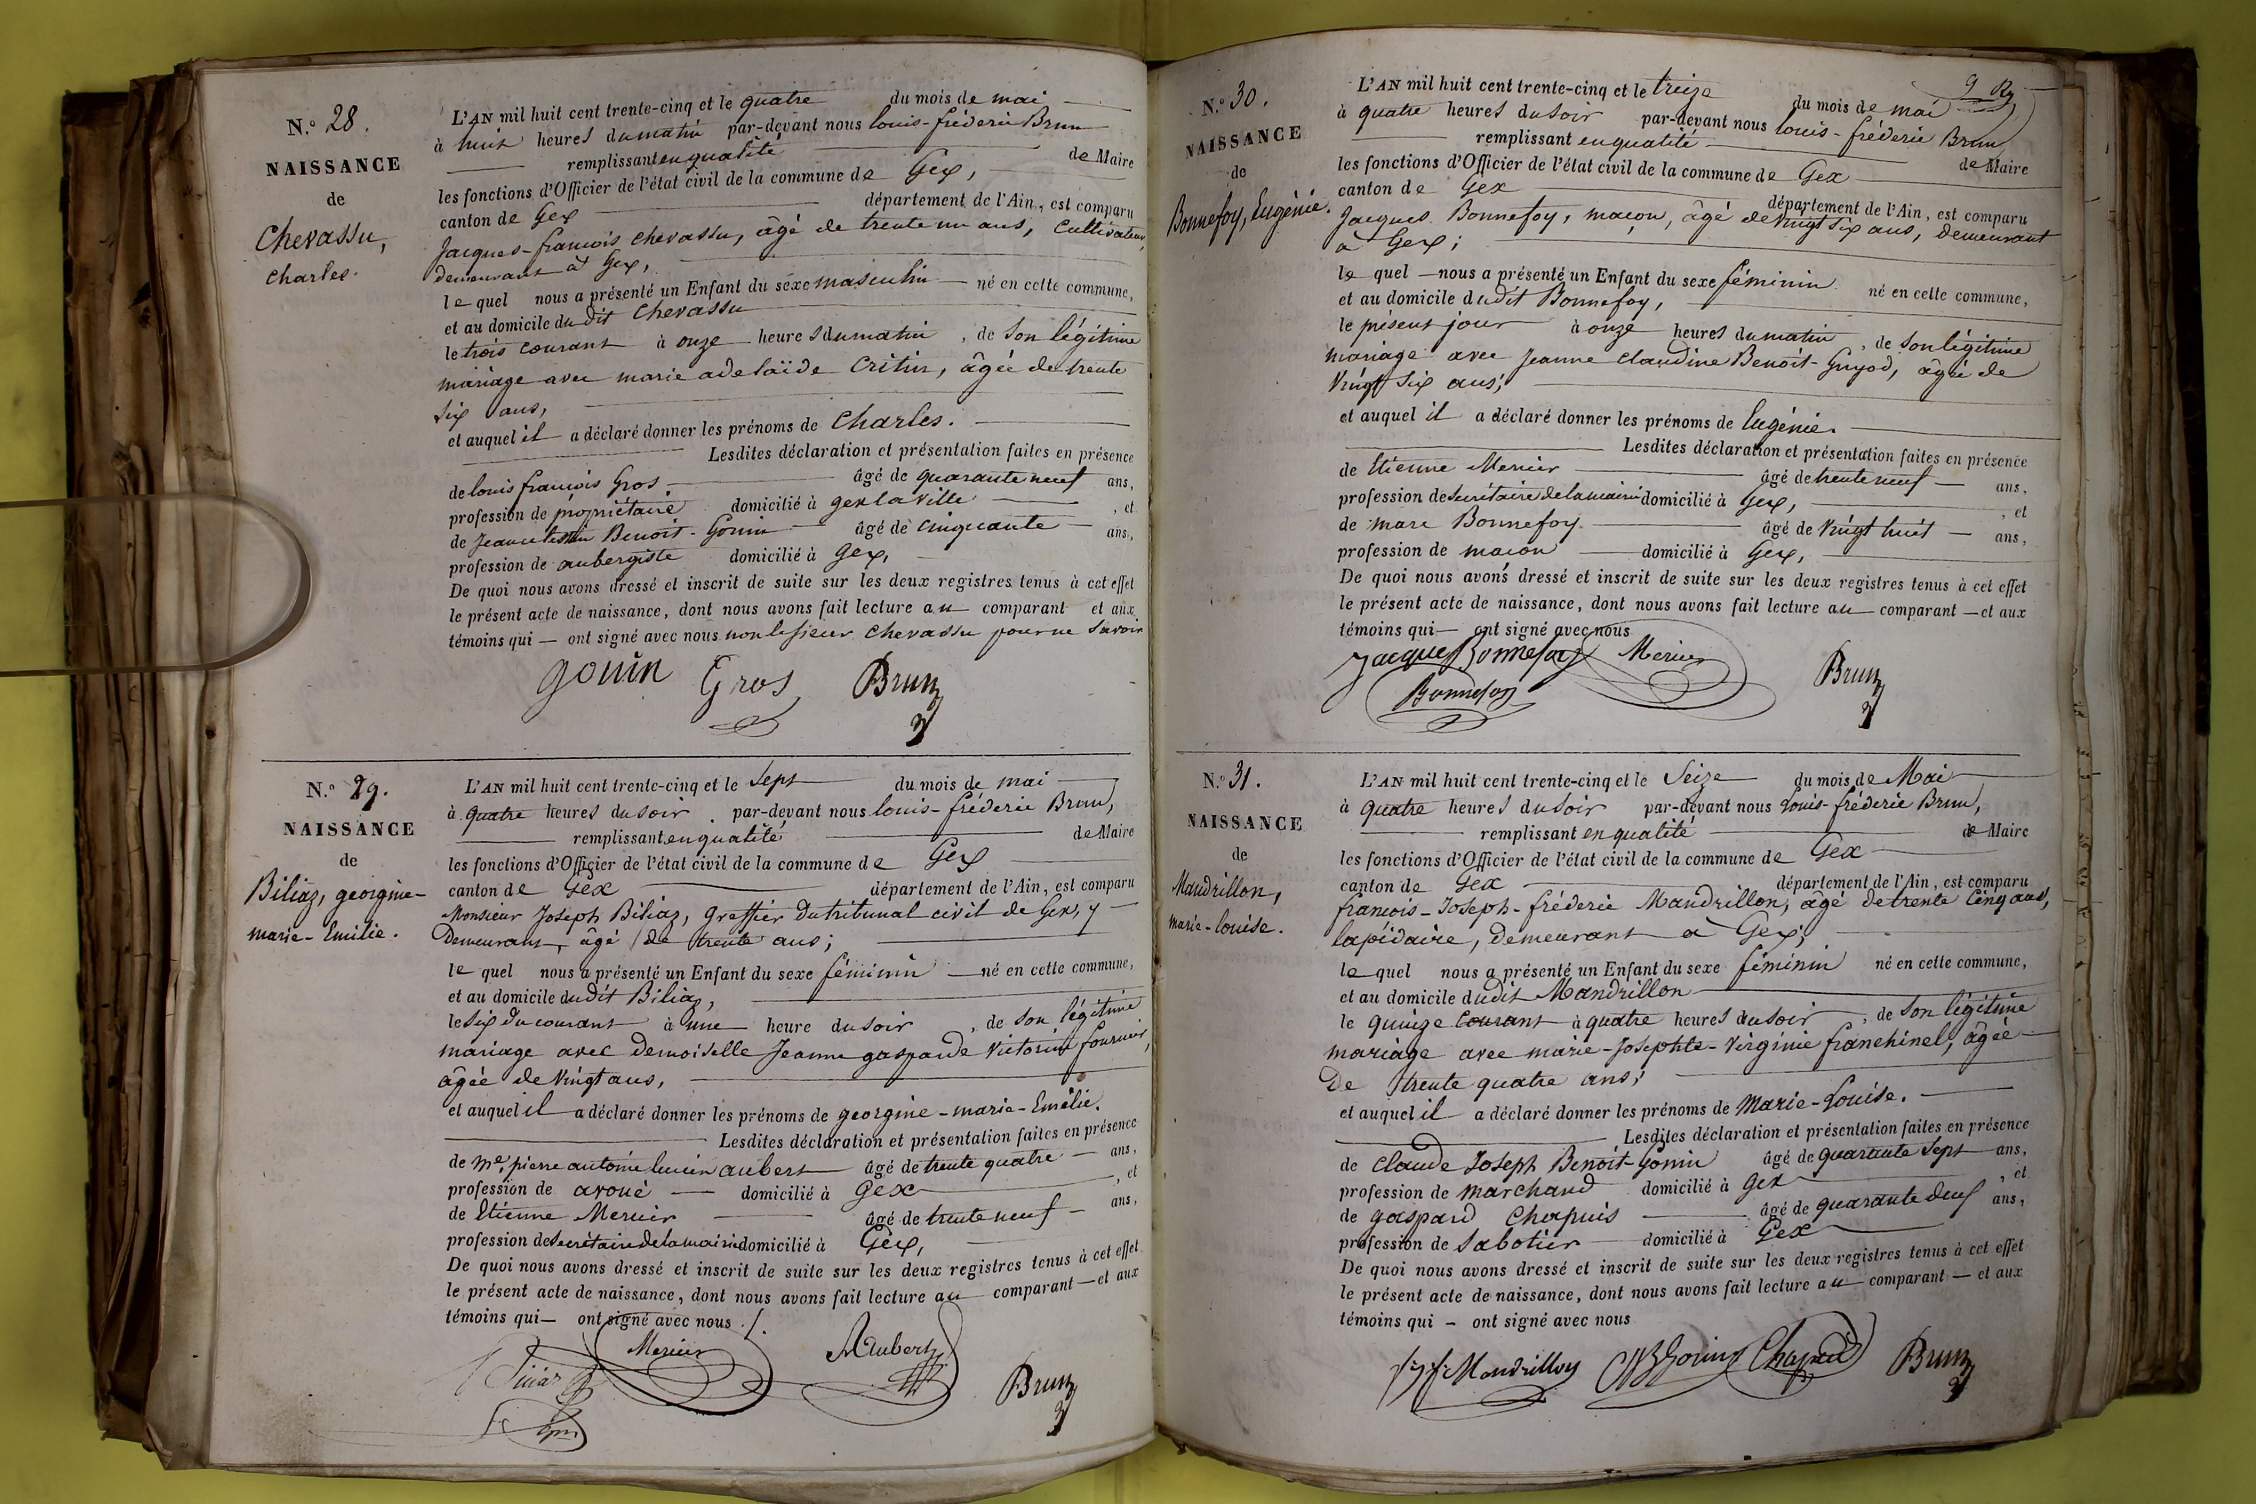 N.º 28.
NAISSANCE
de
Chevassu,
Charles.
L'AN mil huit cent trente-cinq et le quatre du mois de mai
à huit heures du matin par-devant nous louis-fréderic Brun
remplissant en qualité de Maire
les fonctions d'Officier de l'état civil de la commune de Gex,
canton de Gex département de l'Ain, est comparu
Jacques-françois Chevassu, âgé de trente un ans, Cultivateur,
demeurant à Gex,
le quel nous a présenté un Enfant du sexe masculin né en cette commune,
et au domicile du dit Chevassu
le trois courant à onze heures du matin, de son légitime
mariage avec marie adelaïde Critin, âgée de trente
six ans,
et auquel il a déclaré donner les prénoms de Charles.
Lesdites déclaration et présentation faites en présence
de louis françois Gros âgé de quarante neuf ans,
profession de propriétaire domicilié à gex la ville, et
de Benoit-Gonin âgé de cinquante ans,
profession de aubergiste domicilié à Gex,
De quoi nous avons dressé et inscrit de suite sur les deux registres tenus à cet effet
le présent acte de naissance, dont nous avons fait lecture au comparant et aux
témoins qui ont signé avec nous non le sieur Chevassu pour ne savoir
gonin Gros Brun
N.º 29.
NAISSANCE
de
Biliaz, georgine-
marie-Emilie.
L'AN mil huit cent trente-cinq et le sept du mois de mai
à quatre heures du soir par-devant nous louis-fréderic Brun,
remplissant en qualité de Maire
les fonctions d'Officier de l'état civil de la commune de Gex
canton de Gex département de l'Ain, est comparu
Monsieur Joseph Biliaz, Greffier du tribunal civil de Gex, y
Demeurant, âgé de trente ans;
le quel nous a présenté un Enfant du sexe féminin né en cette commune,
et au domicile dudit Biliaz,
le six du courant à une heure du soir, de son légitime
mariage avec demoiselle Jeanne gasparde victorine fournier,
âgée de vingt ans,
et auquel il a déclaré donner les prénoms de georgine-marie-Emélie.
Lesdites déclaration et présentation faites en présence
de Me. pierre antoine lucien aubert âgé de trente quatre ans,
profession de avoué domicilié à Gex, et
de Etienne Mercier âgé de trente neuf ans,
profession de secrétaire de la mairie domicilié à Gex,
De quoi nous avons dressé et inscrit de suite sur les deux registres tenus à cet effet
le présent acte de naissance, dont nous avons fait lecture au comparant et aux
témoins qui ont signé avec nous ./.
Mercier Aubert Brun
9
N.º 30.
NAISSANCE
de
Bonnefoy, Eugénie.
L'AN mil huit cent trente-cinq et le treize du mois de mai
à quatre heures du soir par-devant nous louis-fréderic Brun
remplissant en qualité de Maire
les fonctions d'Officier de l'état civil de la commune de Gex
canton de Gex département de l'Ain, est comparu
Jacques Bonnefoy, maçon, âgé de vingt six ans, demeurant
à Gex;
le quel nous a présenté un Enfant du sexe féminin né en cette commune,
et au domicile dudit Bonnefoy,
le présent jour à onze heures du matin, de son légitime
mariage avec Jeanne Claudine Benoit-Guyod, âgée de
vingt six ans;
et auquel il a déclaré donner les prénoms de Eugénie.
Lesdites déclaration et présentation faites en présence
de Etienne Mercier âgé de trente neuf ans,
profession de secrétaire de la mairie domicilié à Gex, et
de marc Bonnefoy âgé de vingt huit ans,
profession de maçon domicilié à Gex,
De quoi nous avons dressé et inscrit de suite sur les deux registres tenus à cet effet
le présent acte de naissance, dont nous avons fait lecture au comparant et aux
témoins qui ont signé avec nous
Jacque Bonnefoy Mercier Brun
Bonnefoy
N.º 31.
NAISSANCE
de
Mandrillon,
marie-louise.
L'AN mil huit cent trente-cinq et le Seize du mois de Mai
à quatre heures du soir par-devant nous Louis-fréderic Brun,
remplissant en qualité de Maire
les fonctions d'Officier de l'état civil de la commune de Gex
canton de Gex département de l'Ain, est comparu
françois-Joseph-fréderic Mandrillon, âgé de trente cinq ans,
lapidaire, demeurant à Gex;
le quel nous a présenté un Enfant du sexe féminin né en cette commune,
et au domicile dudit Mandrillon
le quinze courant à quatre heures du soir, de son légitime
mariage avec marie-Josephte-virginie franchinel, âgée
De trente quatre ans;
et auquel il a déclaré donner les prénoms de Marie-Louise.
Lesdites déclaration et présentation faites en présence
de Claude Joseph Benoit-Gonin âgé de quarante sept ans,
profession de marchand domicilié à Gex, et
de gaspard Chapuis âgé de quarante deux ans,
profession de Sabotier domicilié à Gex
De quoi nous avons dressé et inscrit de suite sur les deux registres tenus à cet effet
le présent acte de naissance, dont nous avons fait lecture au comparant et aux
témoins qui ont signé avec nous
Mandrillon Gonin Chapuis Brun